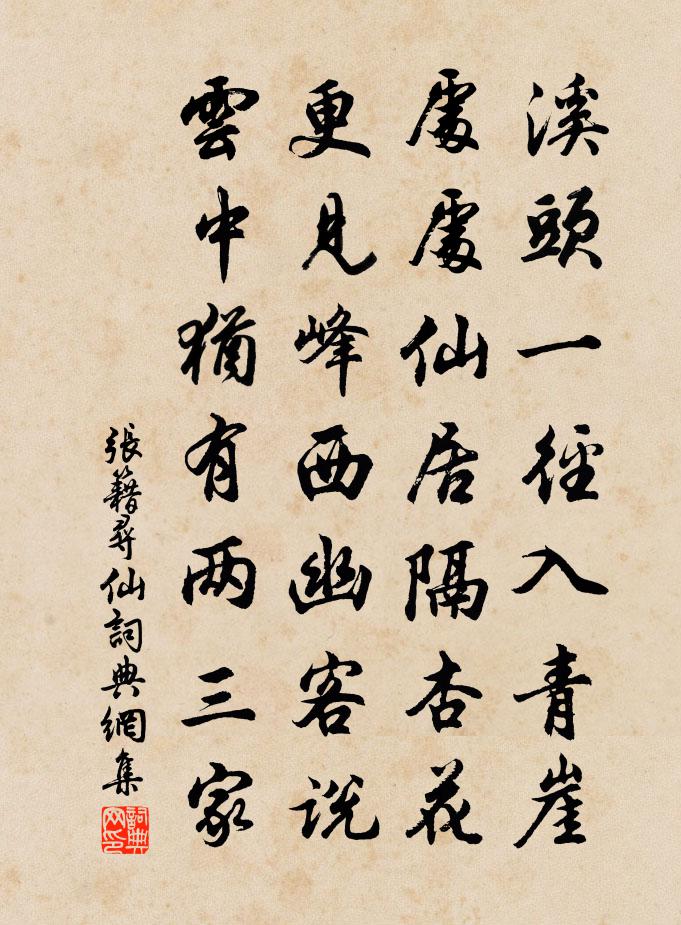 溪頭一徑入青崖
處處仙居隔杏花
更見峰西幽客説
雲中猶有两三家
張籍尋仙詞典網集
詞典网印